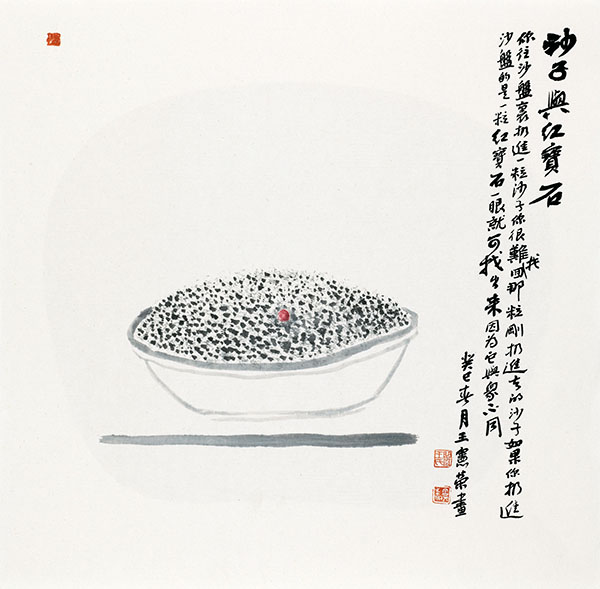 沙子與红寶石
你往沙盤裏扔進一粒沙子你很難找回那粒剛扔進去的沙子如果你扔進
沙盤的是一粒红寶石一眼就可找出来因为它與衆不同
癸巳春月王憲荣畫